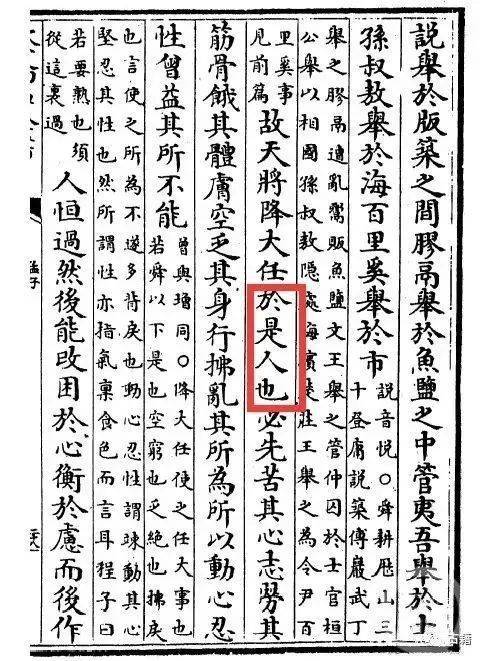 說舉於版築之間膠鬲舉於魚鹽之中管夷吾舉於士
孫叔敖舉於海百里奚舉於市
說音悅〇舜耕歷山三
十登庸說築傅巖武丁
舉之膠鬲遭亂鬻販魚鹽文王舉之管仲囚於士官桓
公舉以相國孫叔敖隱處海濱楚莊王舉之為令尹百
里奚事
見前篇
故天將降大任於是人也必先苦其心志勞其
筋骨餓其體膚空乏其身行拂亂其所為所以動心忍
性曾益其所不能
曾與增同〇降大任使之任大事也
若舜以下是也空窮也乏絕也拂戾
也言使之所為不遂多背戾也動心忍性謂竦動其心
堅忍其性也然所謂性亦指氣稟食色而言耳程子曰
若要熟也須
從這裏過
人恒過然後能改困於心衡於慮而後作
孟子
古籍